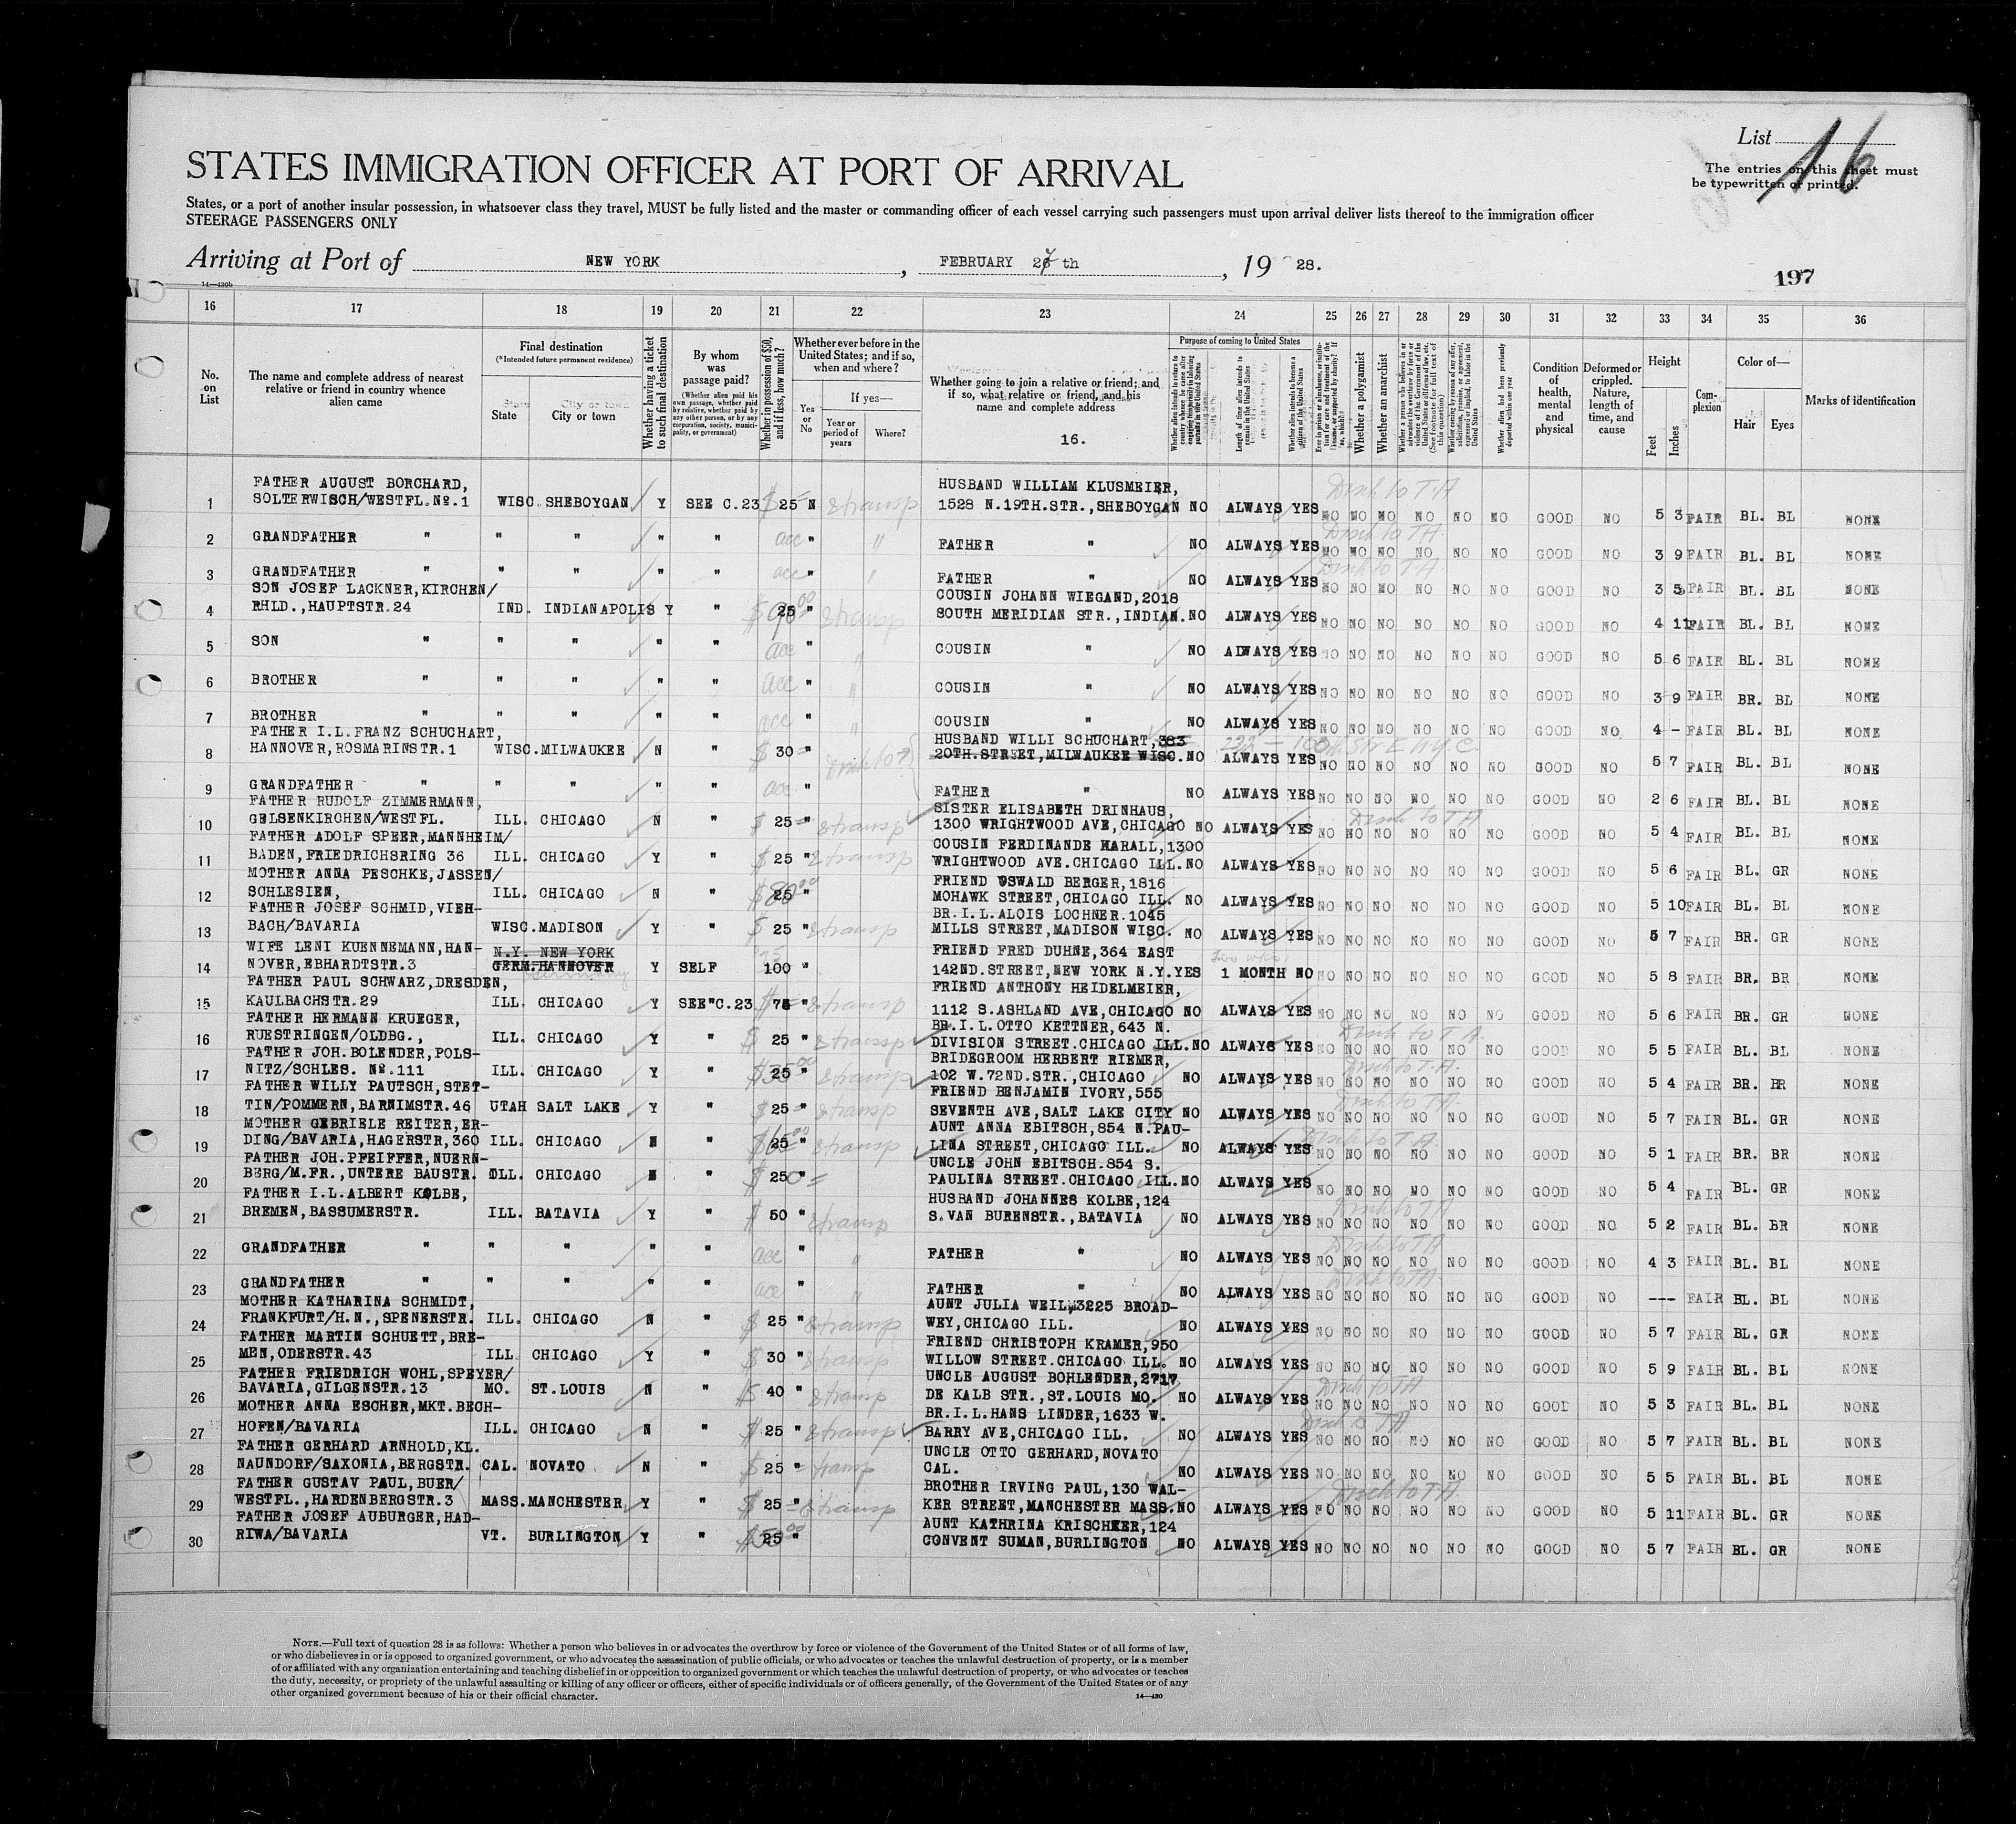 List 16
The entries on this sheet must
be typewritten or printed.
STATES IMMIGRATION OFFICER AT PORT OF ARRIVAL
States, or a port of another insular possession, in whatsoever class they travel, MUST be fully listed and the master or commanding officer of each vessel carrying such passengers must upon arrival deliver lists thereof to the immigration officer
STEERAGE PASSENGERS ONLY
Arriving at Port of NEW YORK, FEBRUARY 27 th, 19 28.
197
14—430b
16 17 18 19 20 21 22 23 24 25 26 27 28 29 30 31 32 33 34 35 36
No. on List
The name and complete address of nearest relative or friend in country whence alien came
Final destination
(*Intended future permanent residence)
State City or town
Whether having a ticket to such final destination
By whom was passage paid?
(Whether alien paid his own passage, whether paid by relative, whether paid by any other person, or by any corporation, society, municipality, or government)
Whether in possession of $50, and if less, how much?
Whether ever before in the United States; and if so, when and where?
Yes or No
If yes—
Year or period of years
Where?
Whether going to join a relative or friend; and if so, what relative or friend, and his name and complete address
16.
Purpose of coming to United States
Length of time alien intends to remain in the United States
Whether alien intends to become a citizen of the United States
Whether a polygamist
Whether an anarchist
Condition of health, mental and physical
Deformed or crippled. Nature, length of time, and cause
Height
Feet Inches
Complexion
Color of—
Hair Eyes
Marks of identification
1 FATHER AUGUST BORCHARD,
SOLTERWISCH/WESTFL.No.1 WISC. SHEBOYGAN Y SEE C.23 $25 N HUSBAND WILLIAM KLUSMEIER,
1528 N.19TH.STR.,SHEBOYGAN NO ALWAYS YES NO NO NO NO NO NO GOOD NO 5 3 FAIR BL. BL NONE
2 GRANDFATHER " " " " " acc " FATHER " NO ALWAYS YES NO NO NO NO NO NO GOOD NO 3 9 FAIR BL. BL NONE
3 GRANDFATHER " " " " " acc " FATHER " NO ALWAYS YES NO NO NO NO NO NO GOOD NO 3 5 FAIR BL. BL NONE
4 SON JOSEF LACKNER,KIRCHEN/
RHLD.,HAUPTSTR.24 IND. INDIANAPOLIS Y " 25 " COUSIN JOHANN WIEGAND,2018
SOUTH MERIDIAN STR.,INDIAN. NO ALWAYS YES NO NO NO NO NO NO GOOD NO 4 11 FAIR BL. BL NONE
5 SON " " " " " acc COUSIN " NO ALWAYS YES NO NO NO NO NO NO GOOD NO 5 6 FAIR BL. BL NONE
6 BROTHER " " " " " acc " COUSIN " NO ALWAYS YES NO NO NO NO NO NO GOOD NO 3 9 FAIR BR. BL NONE
7 BROTHER " " " " " acc " COUSIN " NO ALWAYS YES NO NO NO NO NO NO GOOD NO 4 - FAIR BL. BL NONE
8 FATHER I.L.FRANZ SCHUCHART,
HANNOVER,ROSMARINSTR.1 WISC.MILWAUKEE N " $ 30 " HUSBAND WILLI SCHUCHART,383
20TH.STREET,MILWAUKEE WISC. NO ALWAYS YES NO NO NO NO NO NO GOOD NO 5 7 FAIR BL. BL NONE
9 GRANDFATHER " " " " " acc " FATHER " NO ALWAYS YES NO NO NO NO NO NO GOOD NO 2 6 FAIR BL. BL NONE
10 FATHER RUDOLF ZIMMERMANN,
GELSENKIRCHEN/WESTFL. ILL. CHICAGO N " $ 25 " SISTER ELISABETH DRINHAUS,
1300 WRIGHTWOOD AVE,CHICAGO NO ALWAYS YES NO NO NO NO NO NO GOOD NO 5 4 FAIR BL. BL NONE
11 FATHER ADOLF SPEER,MANNHEIM/
BADEN,FRIEDRICHSRING 36 ILL. CHICAGO Y " $ 25 " COUSIN FERDINANDE HARALL,1300
WRIGHTWOOD AVE.CHICAGO ILL. NO ALWAYS YES NO NO NO NO NO NO GOOD NO 5 6 FAIR BL. GR NONE
12 MOTHER ANNA PESCHKE,JASSEN/
SCHLESIEN, ILL. CHICAGO N " 25 " FRIEND OSWALD BERGER,1816
MOHAWK STREET,CHICAGO ILL. NO ALWAYS YES NO NO NO NO NO NO GOOD NO 5 10 FAIR BL. BL NONE
13 FATHER JOSEF SCHMID,VIEH-
BACH/BAVARIA WISC.MADISON Y " $ 25 " BR.I.L.ALOIS LOCHNER.1045
MILLS STREET,MADISON WISC. NO ALWAYS YES NO NO NO NO NO NO GOOD NO 5 7 FAIR BR. GR NONE
14 WIFE LENI KUENNEMANN,HAN-
NOVER,EBHARDTSTR.3 N.Y. NEW YORK
GERM.HANNOVER Germany Y SELF 100 " FRIEND FRED DUHNE,364 EAST
142ND.STREET,NEW YORK N.Y. YES 1 MONTH NO NO NO NO NO NO NO GOOD NO 5 8 FAIR BR. BR NONE
15 FATHER PAUL SCHWARZ,DRESDEN,
KAULBACHSTR.29 ILL. CHICAGO Y SEE"C.23 $ 75 " FRIEND ANTHONY HEIDELMEIER,
1112 S.ASHLAND AVE,CHICAGO NO ALWAYS YES NO NO NO NO NO NO GOOD NO 5 6 FAIR BR. GR NONE
16 FATHER HERMANN KRUEGER,
RUESTRINGEN/OLDBG., ILL. CHICAGO Y " $ 25 " BR.I.L.OTTO KETTNER,643 N.
DIVISION STREET.CHICAGO ILL. NO ALWAYS YES NO NO NO NO NO NO GOOD NO 5 5 FAIR BL. BL NONE
17 FATHER JOH.BOLENDER,POLS-
NITZ/SCHLES. No.111 ILL. CHICAGO Y " 25 " BRIDEGROOM HERBERT RIEMER,
102 W.72ND.STR.,CHICAGO NO ALWAYS YES NO NO NO NO NO NO GOOD NO 5 4 FAIR BR. BR NONE
18 FATHER WILLY PAUTSCH,STET-
TIN/POMMERN,BARNIMSTR.46 UTAH SALT LAKE Y " $ 25 " FRIEND BENJAMIN IVORY,555
SEVENTH AVE,SALT LAKE CITY NO ALWAYS YES NO NO NO NO NO NO GOOD NO 5 7 FAIR BL. GR NONE
19 MOTHER GEBRIELE REITER,ER-
DING/BAVARIA,HAGERSTR,360 ILL. CHICAGO N " 25 " AUNT ANNA EBITSCH,854 N.PAU-
LINA STREET,CHICAGO ILL. NO ALWAYS YES NO NO NO NO NO NO GOOD NO 5 1 FAIR BR. BR NONE
20 FATHER JOH.PFEIFFER,NUERN-
BERG/M.FR.,UNTERE BAUSTR. ILL. CHICAGO N " $ 25 " UNCLE JOHN EBITSCH.854 S.
PAULINA STREET.CHICAGO ILL. NO ALWAYS YES NO NO NO NO NO NO GOOD NO 5 4 FAIR BL. GR NONE
21 FATHER I.L.ALBERT KOLBE,
BREMEN,BASSUMERSTR. ILL. BATAVIA Y " $ 50 " HUSBAND JOHANNES KOLBE,124
S.VAN BURENSTR.,BATAVIA NO ALWAYS YES NO NO NO NO NO NO GOOD NO 5 2 FAIR BL. BR NONE
22 GRANDFATHER " " " " " acc " FATHER " NO ALWAYS YES NO NO NO NO NO NO GOOD NO 4 3 FAIR BL. BL NONE
23 GRANDFATHER " " " " " acc " FATHER " NO ALWAYS YES NO NO NO NO NO NO GOOD NO --- FAIR BL. BL NONE
24 MOTHER KATHARINA SCHMIDT,
FRANKFURT/H.N.,SPENERSTR. ILL. CHICAGO N " $ 25 " AUNT JULIA WEIL,3225 BROAD-
WEY,CHICAGO ILL. NO ALWAYS YES NO NO NO NO NO NO GOOD NO 5 7 FAIR BL. GR NONE
25 FATHER MARTIN SCHUETT,BRE-
MEN,ODERSTR.43 ILL CHICAGO Y " $ 30 " FRIEND CHRISTOPH KRAMER,950
WILLOW STREET.CHICAGO ILL. NO ALWAYS YES NO NO NO NO NO NO GOOD NO 5 9 FAIR BL. BL NONE
26 FATHER FRIEDRICH WOHL,SPEYER/
BAVARIA,GILGENSTR.13 MO. ST.LOUIS N " $ 40 " UNCLE AUGUST BOHLENDER,2717
DE KALB STR.,ST.LOUIS MO. NO ALWAYS YES NO NO NO NO NO NO GOOD NO 5 3 FAIR BL. BL NONE
27 MOTHER ANNA ESCHER,MKT.BECH-
HOFEN/BAVARIA ILL. CHICAGO N " $ 25 " BR.I.L.HANS LINDER,1633 W.
BARRY AVE,CHICAGO ILL. NO ALWAYS YES NO NO NO NO NO NO GOOD NO 5 7 FAIR BL. BL NONE
28 FATHER GERHARD ARNHOLD,KL.
NAUNDORF/SAXONIA,BERGSTR. CAL. NOVATO N " $ 25 " UNCLE OTTO GERHARD,NOVATO
CAL. NO ALWAYS YES NO NO NO NO NO NO GOOD NO 5 5 FAIR BL. BL NONE
29 FATHER GUSTAV PAUL,BUER/
WESTFL.,HARDENBERGSTR.3 MASS.MANCHESTER Y " $ 25 " BROTHER IRVING PAUL,130 WAL-
KER STREET,MANCHESTER MASS. NO ALWAYS YES NO NO NO NO NO NO GOOD NO 5 11 FAIR BL. GR NONE
30 FATHER JOSEF AUBURGER,HAD-
RIWA/BAVARIA VT. BURLINGTON Y " 25 " AUNT KATHRINA KRISCHKER,124
CONVENT SUMAN,BURLINGTON NO ALWAYS YES NO NO NO NO NO NO GOOD NO 5 7 FAIR BL. GR NONE
NOTE.—Full text of question 28 is as follows: Whether a person who believes in or advocates the overthrow by force or violence of the Government of the United States or of all forms of law,
or who disbelieves in or is opposed to organized government, or who advocates the assassination of public officials, or who advocates or teaches the unlawful destruction of property, or is a member
of or affiliated with any organization entertaining and teaching disbelief in or opposition to organized government or which teaches the unlawful destruction of property, or who advocates or teaches
the duty, necessity, or propriety of the unlawful assaulting or killing of any officer or officers, either of specific individuals or of officers generally, of the Government of the United States or of any
other organized government because of his or their official character.
14—430